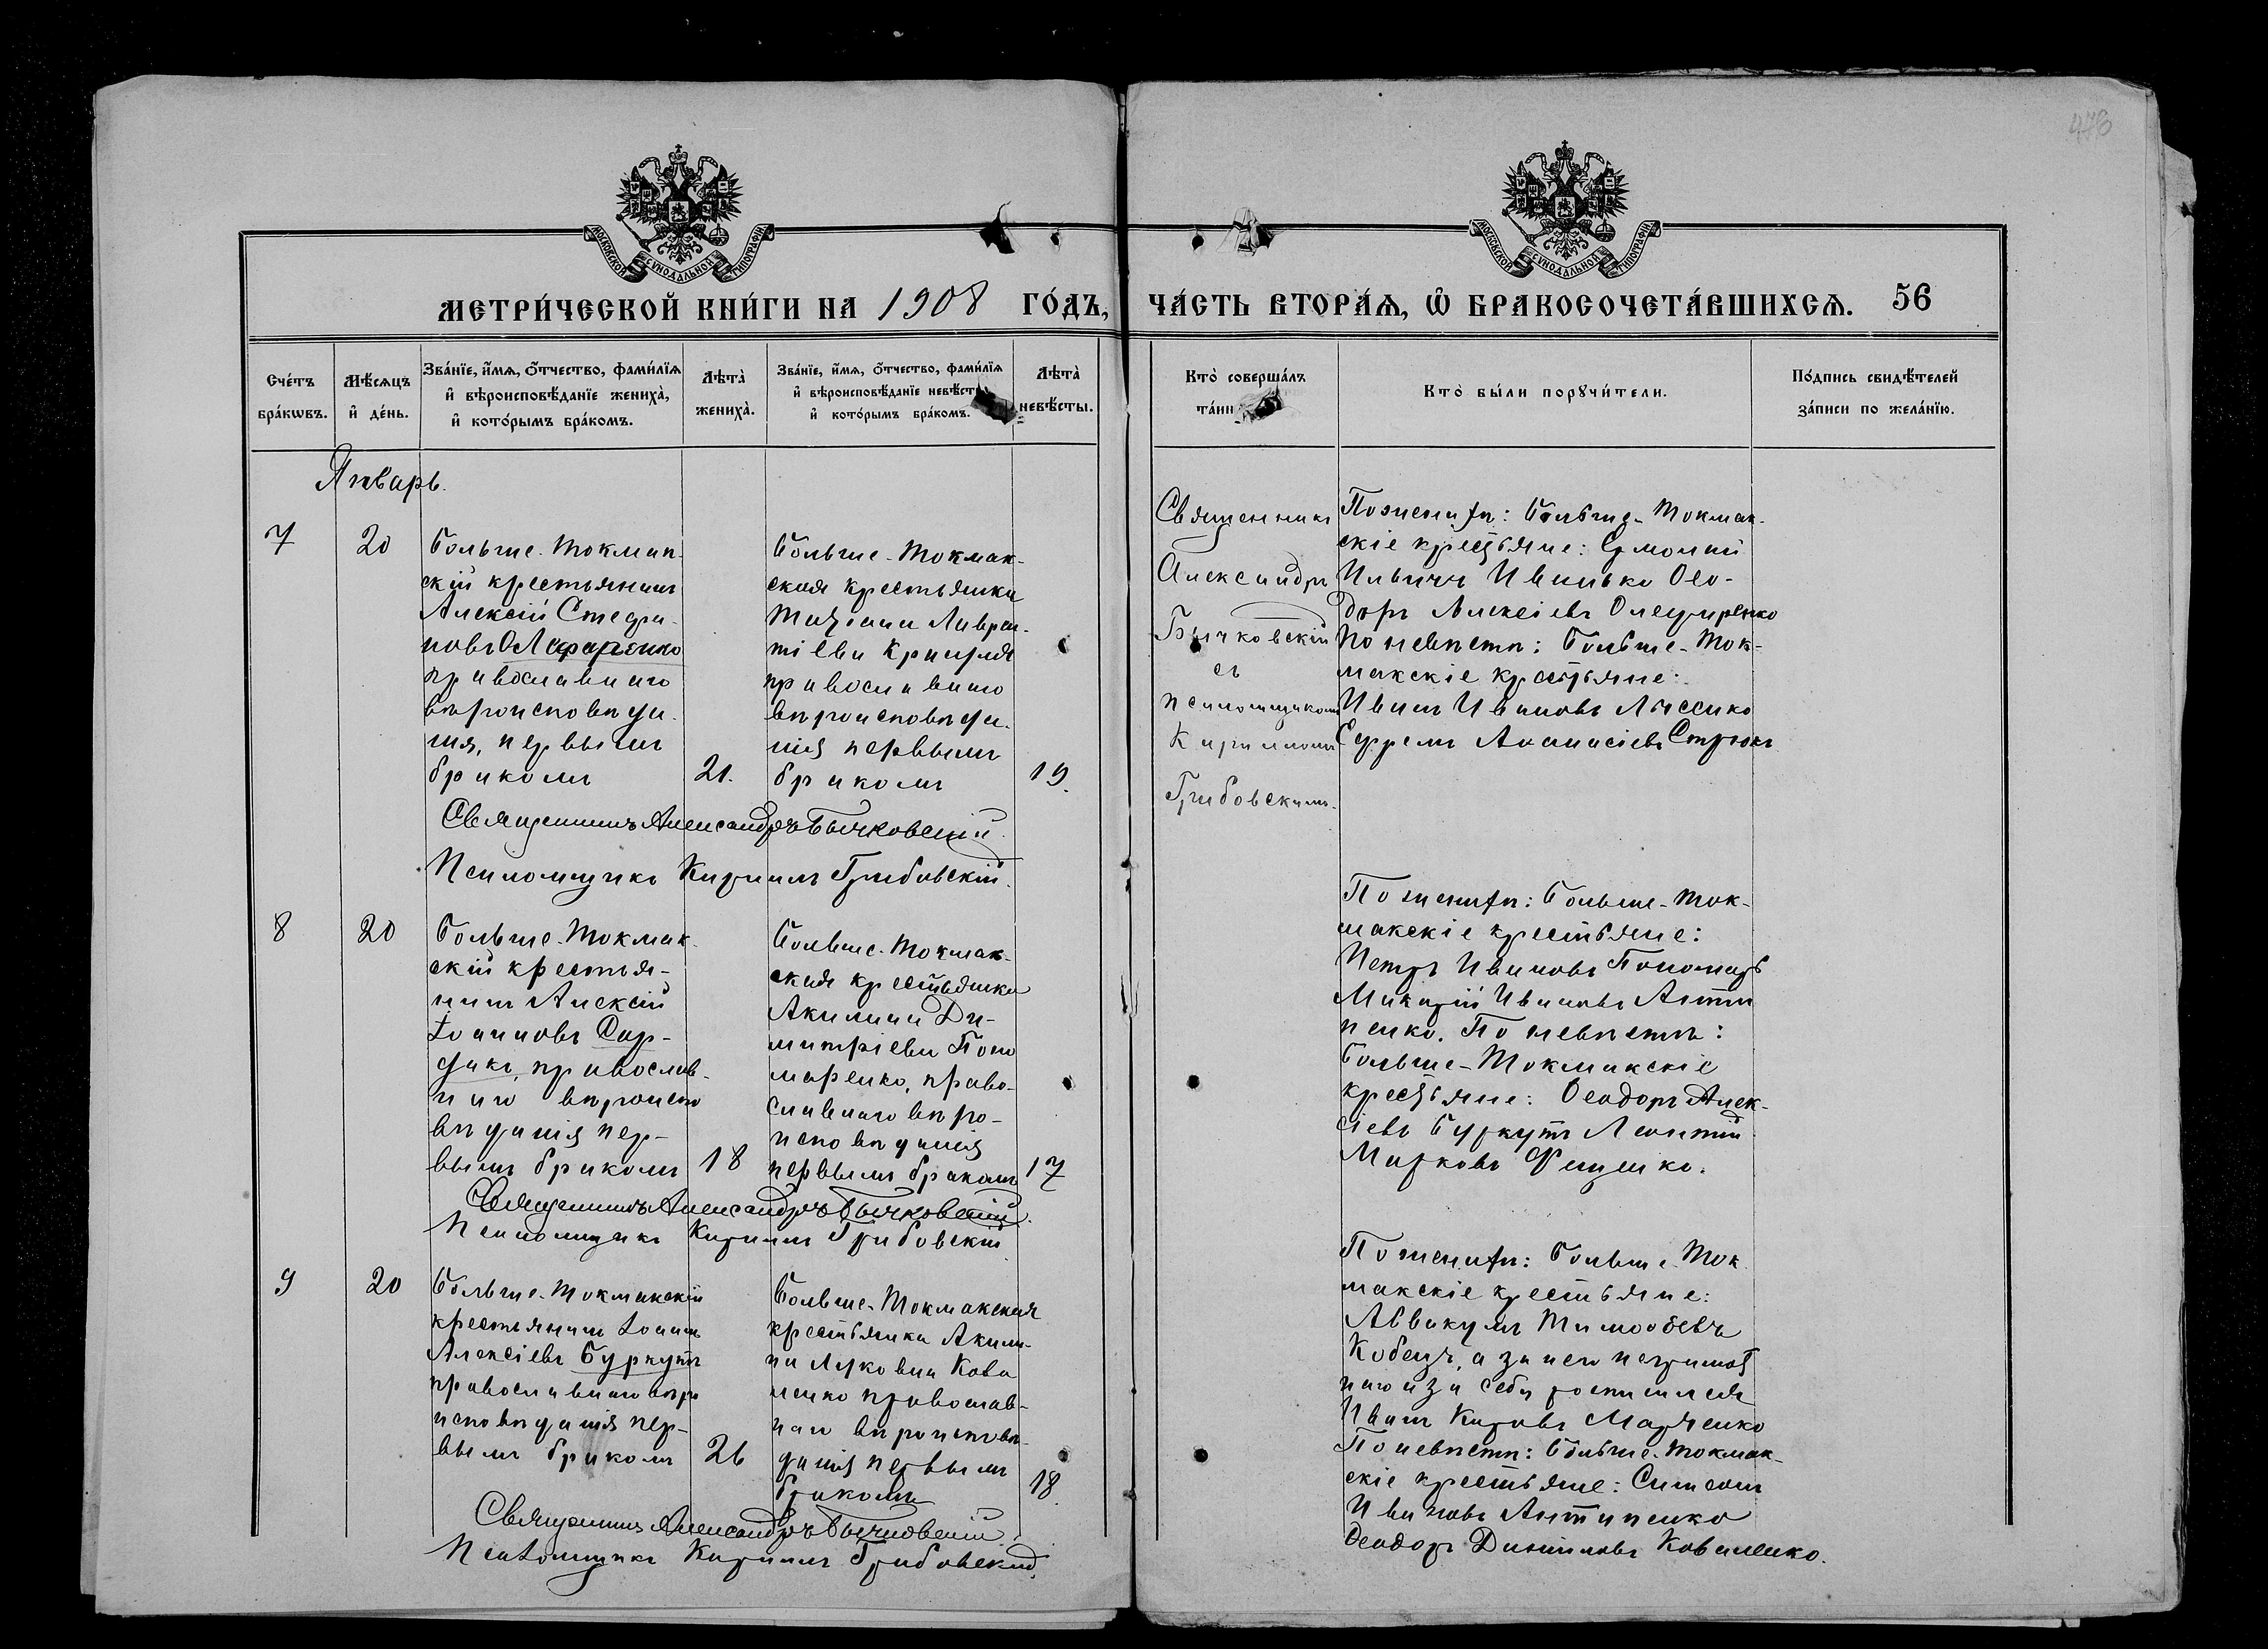 478
МОСКОВСКОЙ СУНОДАЛЬНОЙ ТИПОГРАФІИ
МОСКОВСКОЙ СУНОДАЛЬНОЙ ТИПОГРАФІИ
МЕТРИ́ЧЕСКОЙ КНИ́ГИ НА 1908 ГО́ДЪ,
ЧА́СТЬ ВТОРА́Ѧ, Ѡ҆ БРАКОСОЧЕТА́ВШИХСѦ. 56
Сче́тъ бра́кѡвъ.
Мѣ́сѧцъ и҆ де́нь.
Зва́нїе, и҆́мѧ, ѻ҆́тчество, фами́лїѧ
и҆ вѣроисповѣ́данїе жениха̀,
и҆ кото́рымъ бра́комъ.
Лѣта̀ жениха̀.
Зва́нїе, и҆́мѧ, ѻ҆́тчество, фами́лїѧ
и҆ вѣроисповѣ́данїе невѣ́сты
и҆ кото́рымъ бра́комъ.
Лѣта̀ невѣ́сты.
Кто̀ соверша́лъ
та́ин
Кто̀ бы́ли порꙋчи́тели.
По́дпись свидѣ́телей
за́писи по жела́нїю.
Январь.
7
20
Больше-Токмак-
скій крестьянинъ
Алексій Стефа-
новъ
православнаго
вѣроисповѣда-
нія, первымъ
бракомъ
21.
Больше-Токмак-
ская крестьянка
Татіана Лаврен-
тіева
православнаго
вѣроисповѣда-
нія первымъ
бракомъ
19.
Священникъ
Александръ
Бычковскій
съ
псаломщикомъ
Кирилломъ
Грибовскимъ.
По женихѣ: Больше-Токмак-
скіе крестьяне: Ермолай
Ильичъ Иванько Ѳео-
доръ Алексіевъ Олефиренко
По невѣстѣ: Больше-Ток-
макскіе крестьяне:
Иванъ Ивановъ Лысенко
Ефремъ Аѳанасіевъ Стрюкъ
Священникъ Александръ Бычковскій
Псаломщикъ Кириллъ Грибовскій.
8
20
Больше-Токмак-
скій крестья-
нинъ Алексій
Іоанновъ Сар-
дакъ, православ-
наго вѣроиспо
вѣданія пер-
вымъ бракомъ
18
Больше-Токмак-
ская крестьянка
Акилина Ди-
митріева Поно
маренко, право-
славнаго вѣро-
исповѣданія
первымъ бракомъ
17
По женихѣ: Больше-Ток-
макскіе крестьяне:
Петръ Ивановъ Пономарь
Макарій Ивановъ Анти
пенко. По невѣстѣ:
Больше-Токмакскіе
крестьяне: Ѳеодоръ Алек-
сіевъ Буркутъ Леонтій
Марковъ Фещенко.
Священникъ Александръ Бычковскій.
Псаломщикъ Кириллъ Грибовскій
9
20
Больше-Токмакскій
крестьянинъ Іоаннъ
Алексіевъ Буркутъ
православнаго вѣро
исповѣданія пер-
вымъ бракомъ
26
Больше-Токмакская
крестьянка Акили-
на Луковна Кова
ленко православ-
наго вѣроисповѣ-
данія первымъ
бракомъ
18.
По женихѣ: Больше-Ток
макскіе крестьяне:
Аввакумъ Тимоѳеевъ
Кобецъ, а за него неграмот
наго и за себя росписался
Иванъ Карповъ Марченко
По невѣстѣ: Больше-Токмак-
скіе крестьяне: Симеонъ
Ивановъ Антипенко
Ѳеодоръ Даниловъ Коваленко.
Священникъ Александръ Бычковскій.
Псаломщикъ Кириллъ Грибовскій.